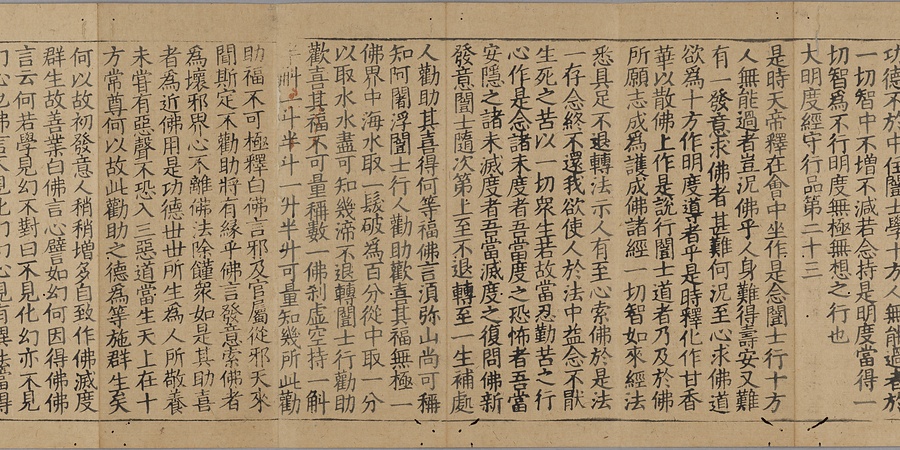 功德不於中住闓士學十方人無能過者於
一切智中不增不減若念持是明度當得一
切智爲不行明度無極無想之行也
大明度經守行品第二十三
是時天帝釋在會中坐作是念闓士行十方
人無能過者豈況佛乎人身難得壽安又難
有一發意求佛者甚難何況至心求佛道
欲爲十方作明度導者乎是時釋化作甘香
華以散佛上作是說行闓士道者乃及於佛
所願志成爲護成佛諸經一切智如來經法
悉具足不退轉法示人有至心索佛於是法
一存念終不還我欲使人於法中益念不厭
生死之苦以一切衆生若故當忍勤苦之行
心作是念諸未度者吾當度之恐怖者吾當
安隱之諸未滅度者吾當滅度之復問佛新
發意闓士隨次第上至不退轉至一生補處
人勸助其喜得何等福佛言須弥山尚可稱
知阿闍浮闓士行人勸助歡喜其福無極一
佛界中海水取一髮破爲百分從中取一分
以取水水盡可知幾渧不退轉闓士行勸助
歡喜其福不可量稱數一佛刹虛空持一斛
半斛一斗半斗一升半升可量知幾所此勸
助福不可極釋白佛言邪及官屬從邪天來
聞斯定不勸助將有緣乎佛言發意索佛者
爲壞邪界心不離佛法除饉衆如是其助喜
者爲近佛用是功德世世所生爲人所敬養
未甞有惡聲不恐入三惡道當生天上在十
方常尊何以故此勸助之德爲等施群生矣
何以故初發意人稍稍增多自致作佛滅度
群生故善業白佛言心譬如幻何因得佛佛
言云何若學見幻不對曰不見化幻亦不見